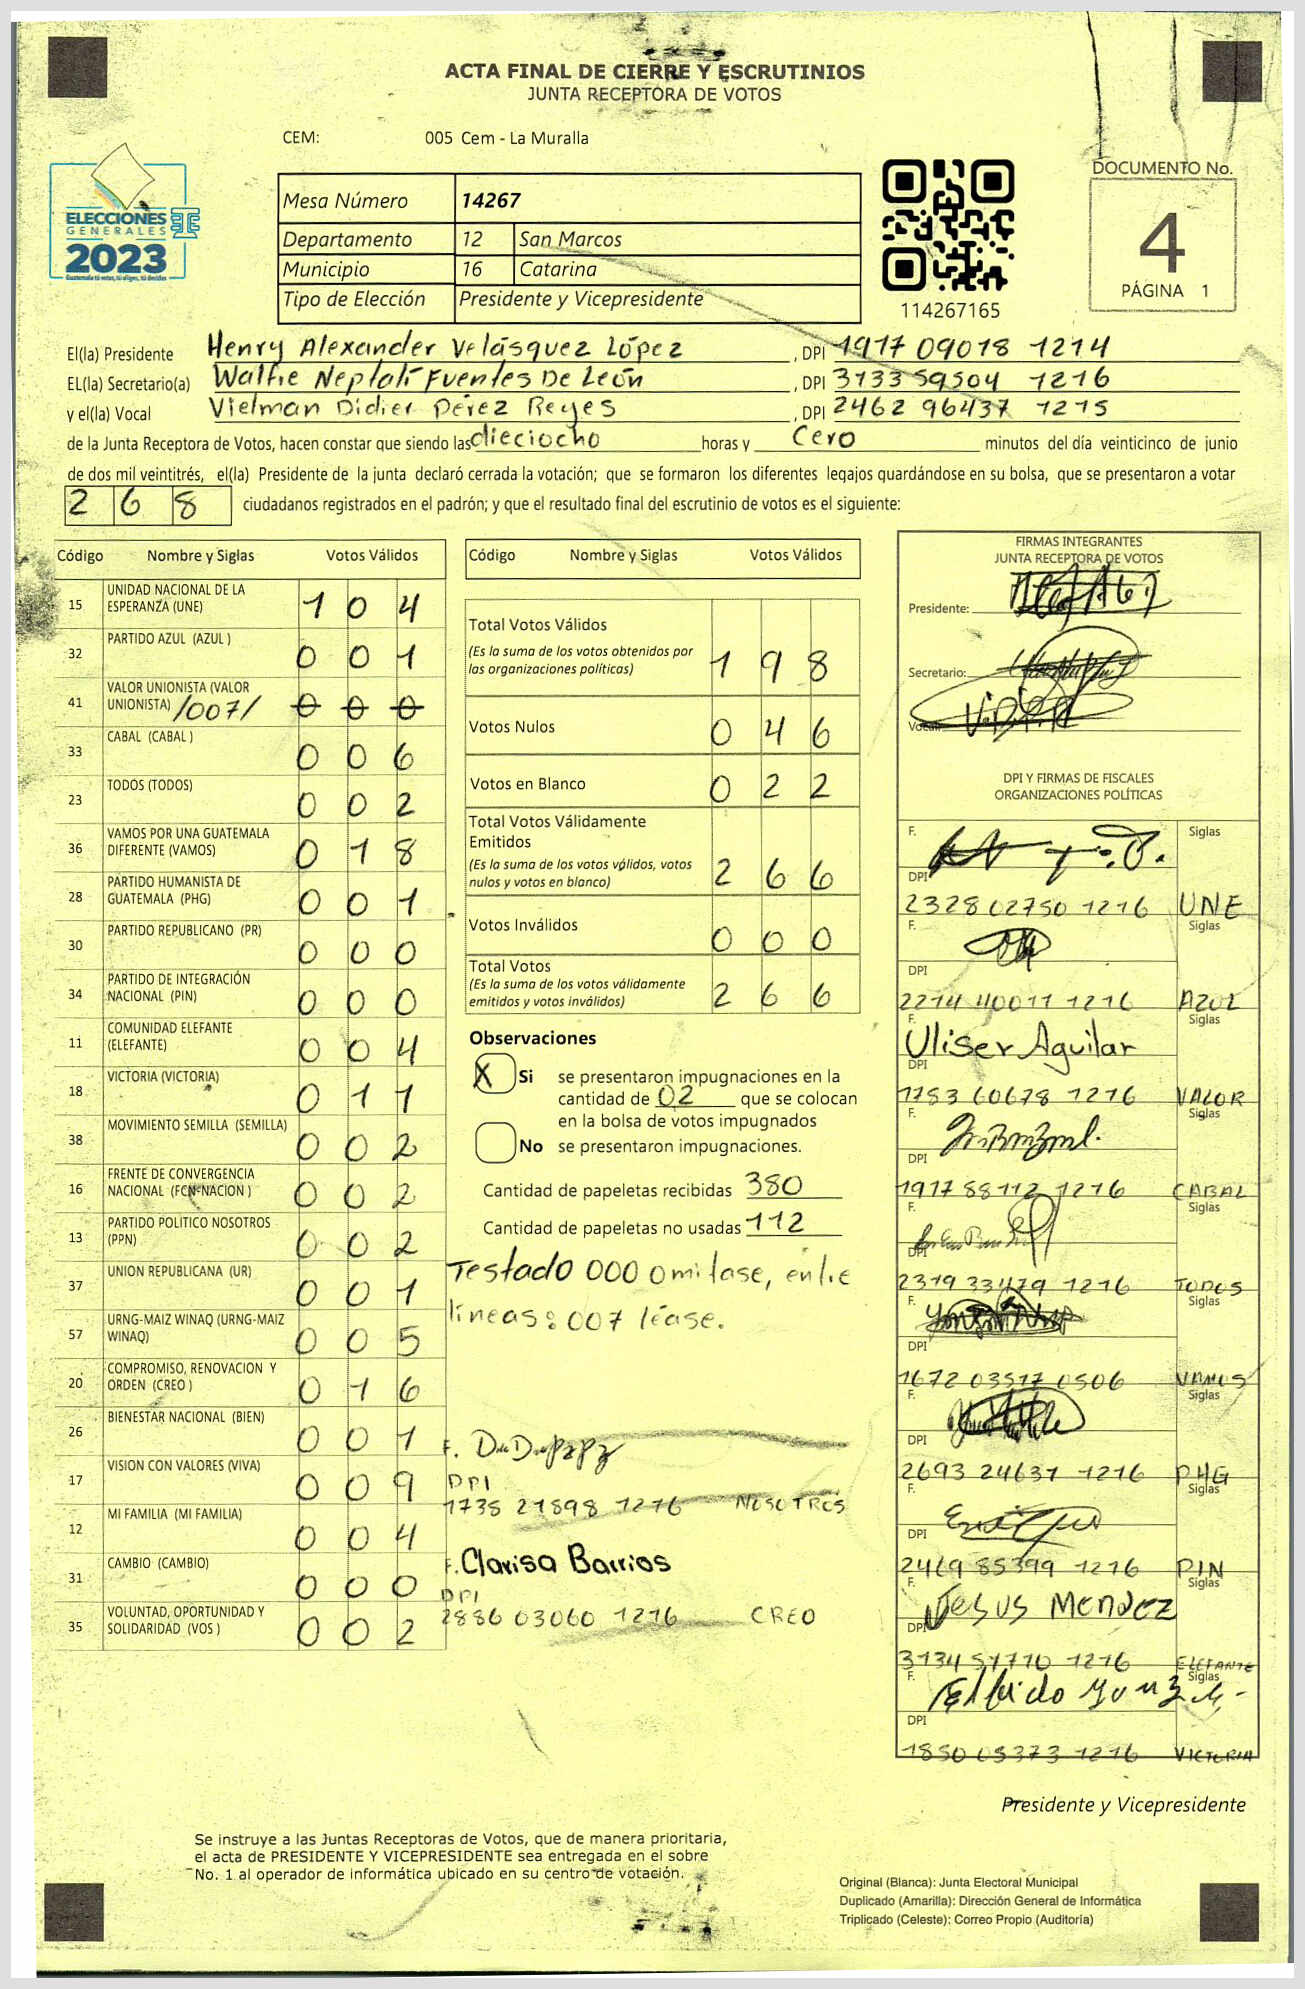 ACTA FINAL DE CIERRE Y ESCRUTINIOS
JUNTA RECEPTORA DE VOTOS
CEM: 005 Cem - La Muralla
DOCUMENTO No.
4
PÁGINA 1
ELECCIONES
GENERALES
2023
Guatemala tú votas, tú eliges, tú decides
Mesa Número 14267
Departamento 12 San Marcos
Municipio 16 Catarina
Tipo de Elección Presidente y Vicepresidente
114267165
El(la) Presidente Henry Alexander Velásquez López, DPI 1917 09018 1214
EL(la) Secretario(a) Walfre Neptalí Fuentes De León, DPI 3133 59504 1216
y el(la) Vocal Vielman Didier Pérez Reyes, DPI 2462 96437 1215
de la Junta Receptora de Votos, hacen constar que siendo las dieciocho horas y cero minutos del día veinticinco de junio
de dos mil veintitrés, el(la) Presidente de la junta declaró cerrada la votación; que se formaron los diferentes legajos guardándose en su bolsa, que se presentaron a votar
268 ciudadanos registrados en el padrón; y que el resultado final del escrutinio de votos es el siguiente:
Código Nombre y Siglas Votos Válidos
15 UNIDAD NACIONAL DE LA ESPERANZA (UNE) 104
32 PARTIDO AZUL (AZUL ) 001
41 VALOR UNIONISTA (VALOR UNIONISTA) /007/ 000
33 CABAL (CABAL ) 006
23 TODOS (TODOS) 002
36 VAMOS POR UNA GUATEMALA DIFERENTE (VAMOS) 018
28 PARTIDO HUMANISTA DE GUATEMALA (PHG) 001
30 PARTIDO REPUBLICANO (PR) 000
34 PARTIDO DE INTEGRACIÓN NACIONAL (PIN) 000
11 COMUNIDAD ELEFANTE (ELEFANTE) 004
18 VICTORIA (VICTORIA) 011
38 MOVIMIENTO SEMILLA (SEMILLA) 002
16 FRENTE DE CONVERGENCIA NACIONAL (FCN-NACION ) 002
13 PARTIDO POLITICO NOSOTROS (PPN) 002
37 UNION REPUBLICANA (UR) 001
57 URNG-MAIZ WINAQ (URNG-MAIZ WINAQ) 005
20 COMPROMISO, RENOVACION Y ORDEN (CREO ) 016
26 BIENESTAR NACIONAL (BIEN) 001
17 VISION CON VALORES (VIVA) 009
12 MI FAMILIA (MI FAMILIA) 004
31 CAMBIO (CAMBIO) 000
35 VOLUNTAD, OPORTUNIDAD Y SOLIDARIDAD (VOS ) 002
Código Nombre y Siglas Votos Válidos
Total Votos Válidos
(Es la suma de los votos obtenidos por las organizaciones políticas) 198
Votos Nulos 046
Votos en Blanco 022
Total Votos Válidamente Emitidos
(Es la suma de los votos válidos, votos nulos y votos en blanco) 266
Votos Inválidos 000
Total Votos
(Es la suma de los votos válidamente emitidos y votos inválidos) 266
Observaciones
X Si se presentaron impugnaciones en la
cantidad de 02 que se colocan
en la bolsa de votos impugnados
No se presentaron impugnaciones.
Cantidad de papeletas recibidas 380
Cantidad de papeletas no usadas 112
Testado 000 omitase, entre
lineas: 007 léase.
F.
DPI
1738 21898 1216 NOSOTROS
F. Clarisa Barrios
DPI
2886 03060 1216 CREO
FIRMAS INTEGRANTES
JUNTA RECEPTORA DE VOTOS
Presidente:
Secretario:
Vocal:
DPI Y FIRMAS DE FISCALES
ORGANIZACIONES POLÍTICAS
F. Siglas
DPI
2328 02750 1216 UNE
F. Siglas
DPI
2214 40011 1216 AZUL
F. Uliser Aguilar Siglas
DPI
1753 60678 1216 VALOR
F. Siglas
DPI
1917 88112 1216 CABAL
F. Siglas
DPI
2319 33479 1216 TODOS
F. Siglas
DPI
1672 03517 0506 VAMOS
F. Siglas
DPI
2693 24637 1216 PHG
F. Siglas
DPI
2469 85399 1216 PIN
F. Jesus Mendez Siglas
DPI
3134 51710 1216 ELEFANTE
F. Siglas
DPI
1850 05373 1216 VICTORIA
Presidente y Vicepresidente
Se instruye a las Juntas Receptoras de Votos, que de manera prioritaria,
el acta de PRESIDENTE Y VICEPRESIDENTE sea entregada en el sobre
No. 1 al operador de informática ubicado en su centro de votación.
Original (Blanca): Junta Electoral Municipal
Duplicado (Amarilla): Dirección General de Informática
Triplicado (Celeste): Correo Propio (Auditoría)